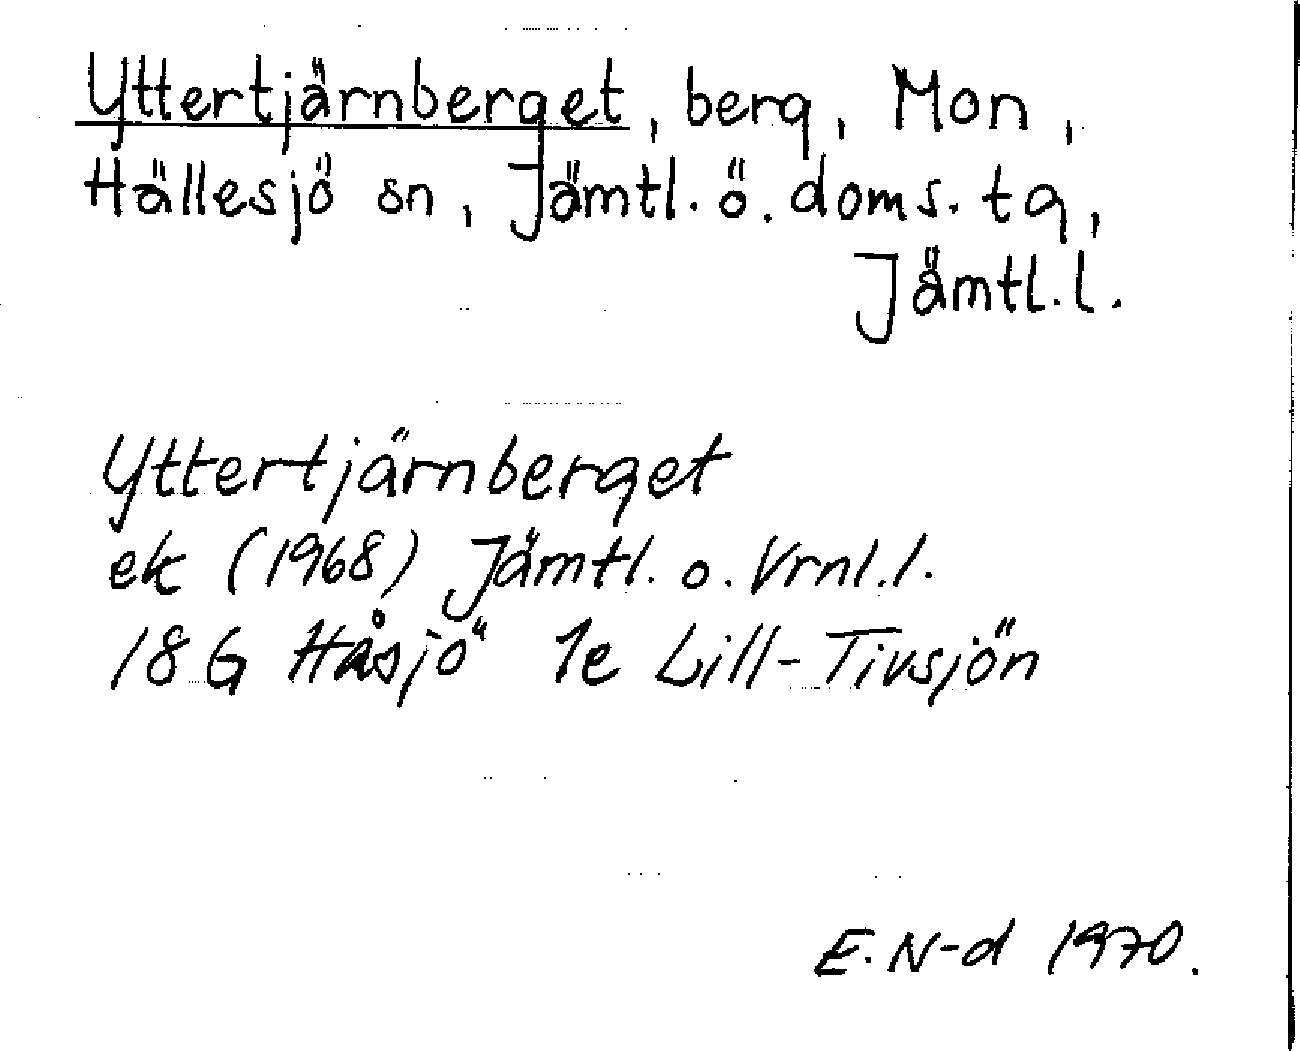 Yttertjärnberget, berg, Mon,
Hällesjö sn, Jämtl. ö. doms. tg,
Jämtl. l.
Yttertjärnberget
ek (1968) Jämtl. o. Vrnl. l.
18 G Håsjö 1e Lill-Tivsjön
E. N-d 1970.